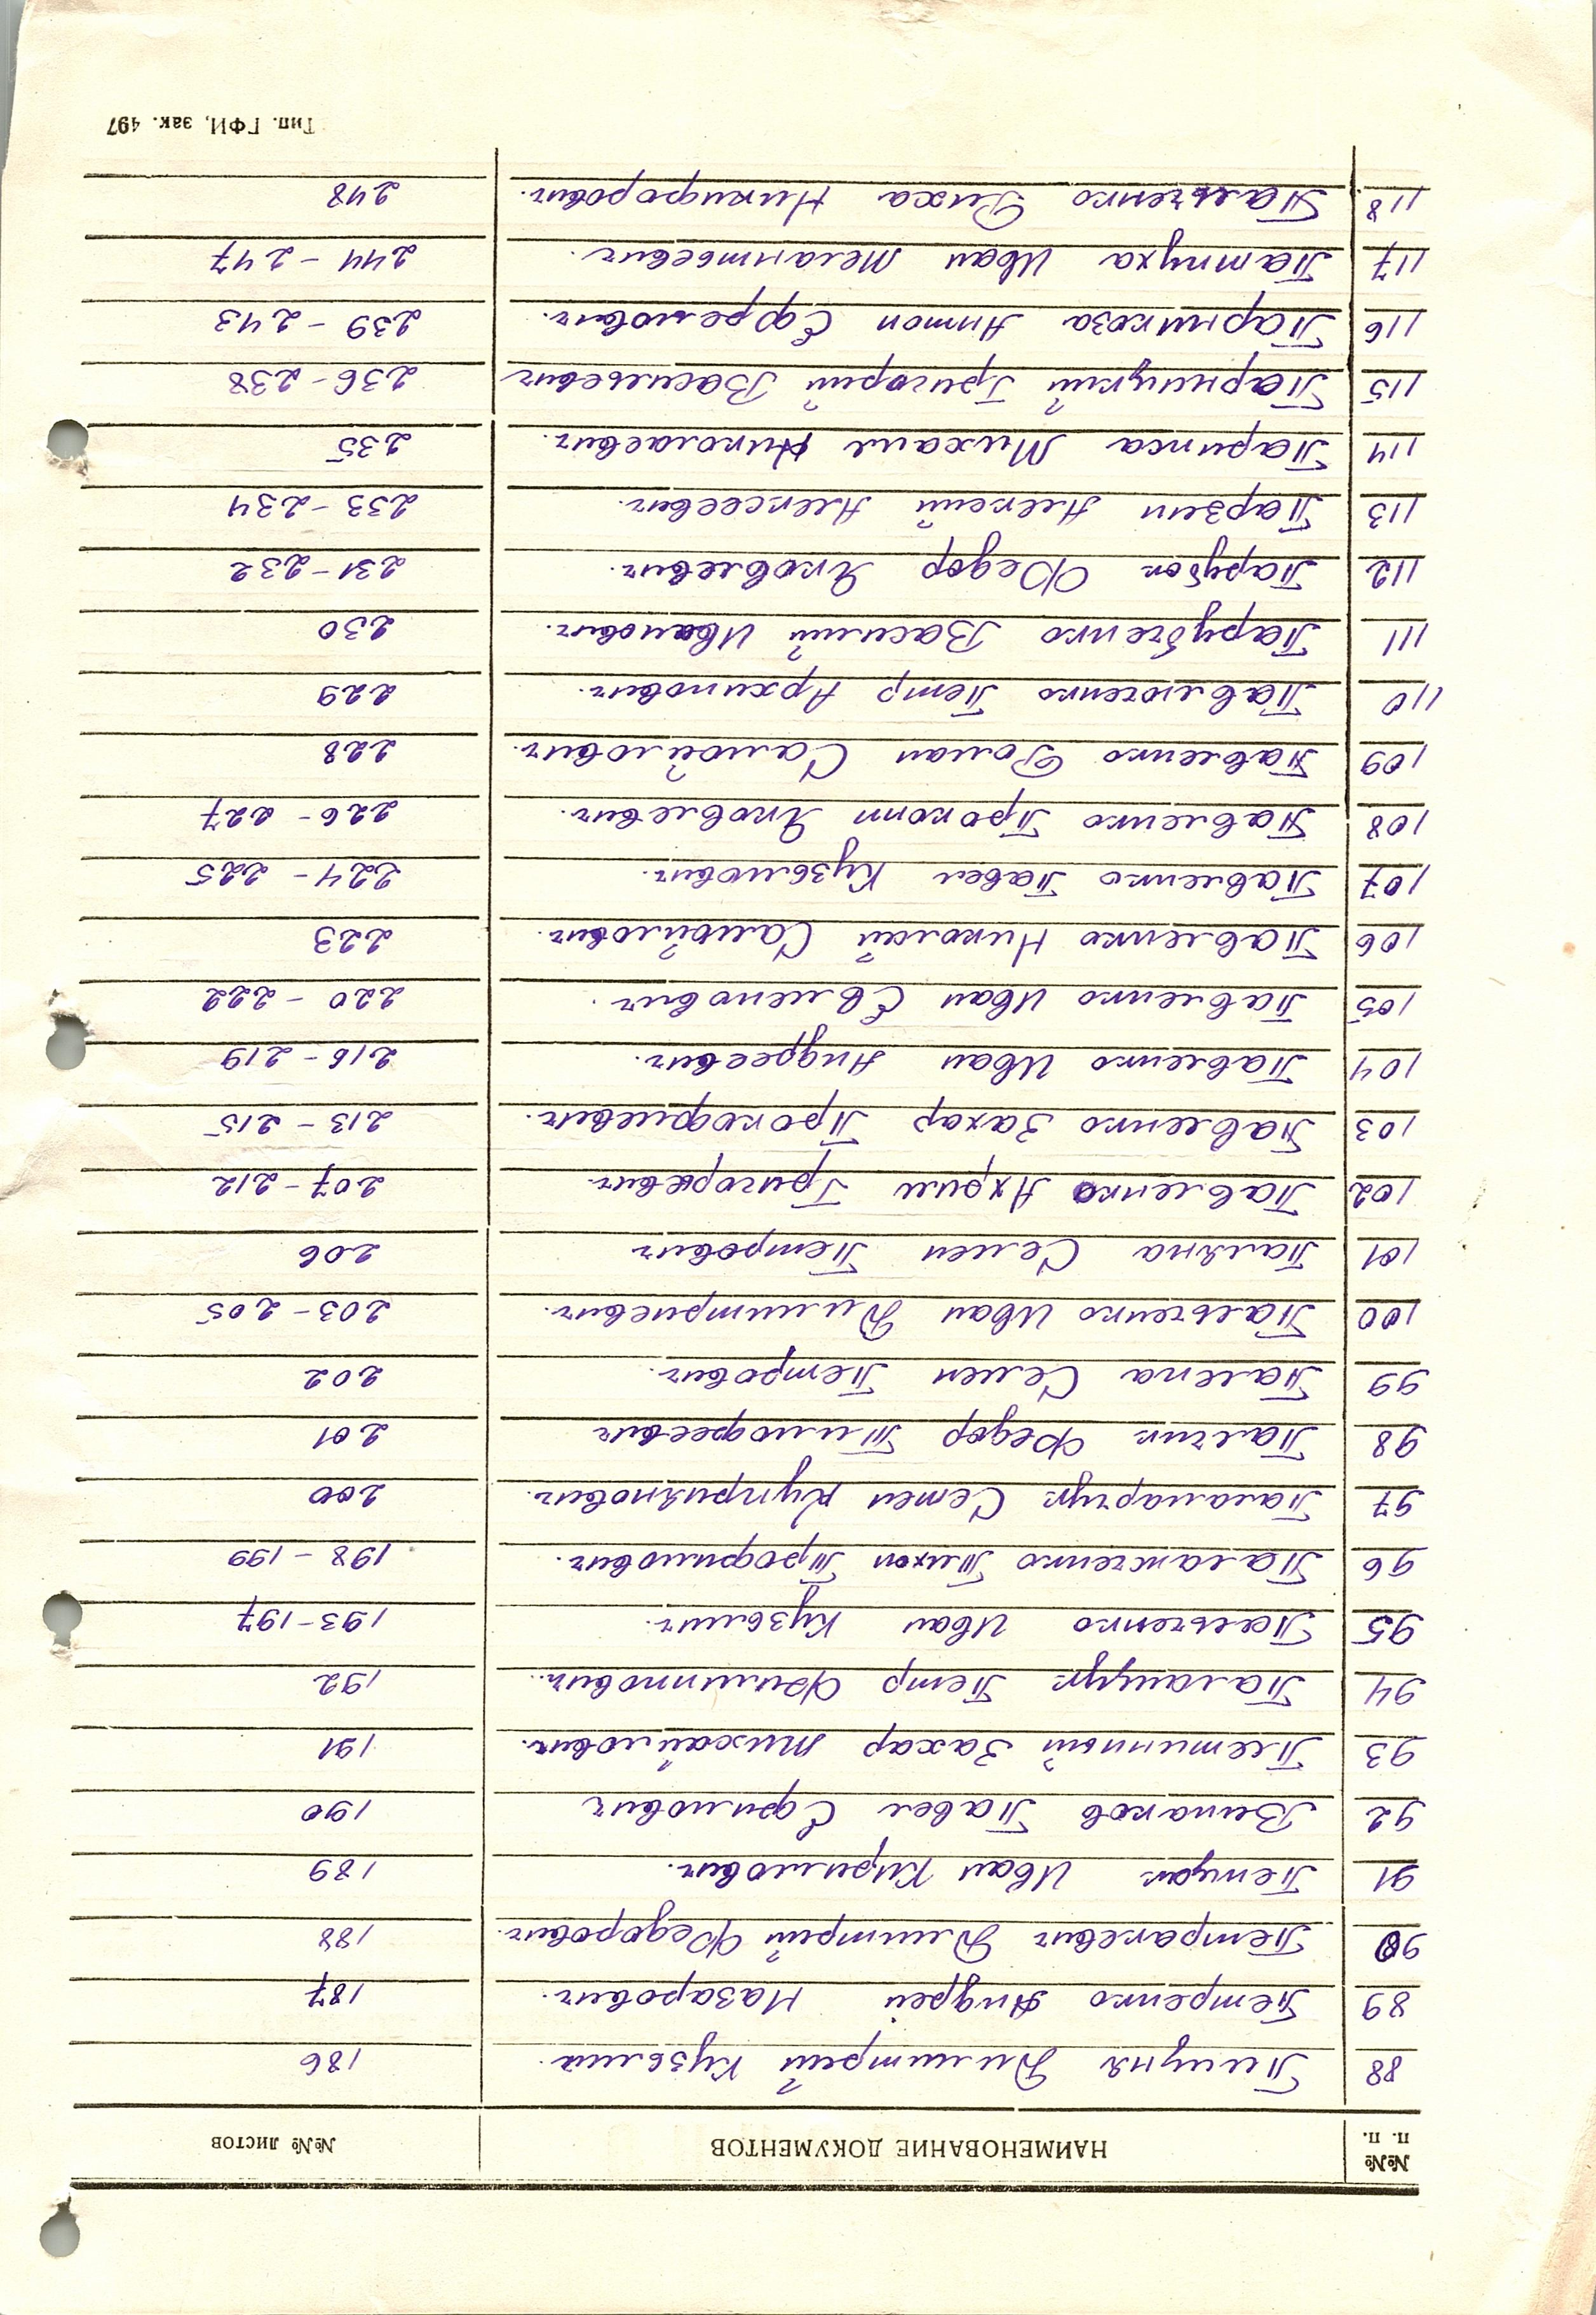 №№ п. п. НАИМЕНОВАНИЕ ДОКУМЕНТОВ №№ листов
88 Пицуня Дмитрий Кузьмич. 186
89 Петренко Андрей Назарович. 187
90 Петракевич Дмитрий Федорович. 188
91 Иван Кирилович. 189
92 Винаков Павел Ефимович 190
93 Захар Михайлович. 191
94 Петр Филиппович. 192
95 Пальченко Иван Кузьмич. 193-197
96 Паламченко Тихон Трофимович. 198-199
97 Паламарчук Семен Куприянович. 200
98 Палчик Федор Тимофеевич 201
99 Палена Семен Петрович. 202
100 Пальченко Иван Дмитриевич. 203-205
101 Паляна Семен Петрович 206
102 Павленко Ахрим Григоревич. 207-212
103 Павленко Захар Прокофиевич. 213-215
104 Павленко Иван Андреевич. 216-219
105 Павленко Иван Евменович. 220-222
106 Павленко Николай Самойлович. 223
107 Павленко Павел Кузьмович. 224-225
108 Павленко Прокоп Яковлевич. 226-227
109 Павленко Роман Самойлович. 228
110 Павлюченко Петр Архипович. 229
111 Парубченко Василий Иванович. 230
112 Парубок Федор Яковлевич. 231-232
113 Парзен Алексей Алексеевич. 233-234
114 Парипса Михаил Николаевич. 235
115 Парницкий Григорий Васильевич 236-238
116 Парникоза Антон Ефремович. 239-243
117 Патпуха Иван Мелантьевич. 244-247
118 Пальченко Риха Никифорович. 248
Тип. ГФИ, зак. 497